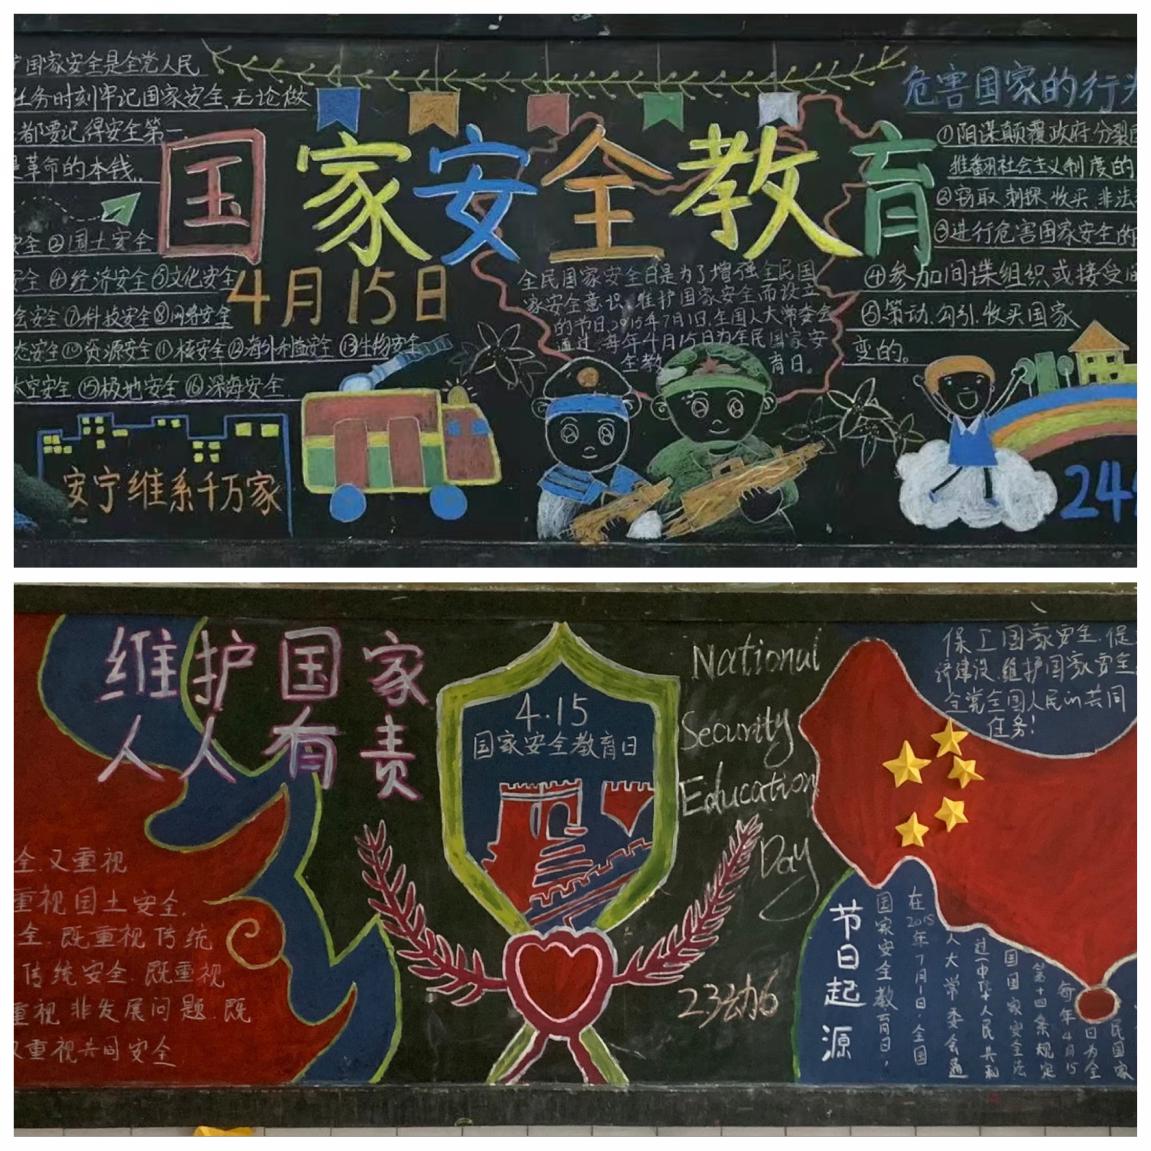 国家安全是全党人民
任务时刻牢记国家安全,无论做
都要记得安全第一
是革命的本钱。
安全②国土安全
安全④经济安全⑤文化安全
会安全⑦科技安全⑧网络安全
态安全⑩资源安全⑪核安全⑫海外利益安全⑬生物安全
太空安全⑮极地安全⑯深海安全
安宁维系千万家
国家安全教育
4月15日
全民国家安全日是为了增强全民国
家安全意识,维护国家安全而设立
的节日.2015年7月1日,全国人大常委会
通过,每年4月15日为全民国家安
全教育日。
危害国家的行为
①阴谋颠覆政府分裂国
推翻社会主义制度的
②窃取.刺探.收买.非法
③进行危害国家安全的
④参加间谍组织或接受
⑤策动.勾引.收买国家
变的。
维护国家
人人有责
全.又重视
重视国土安全
全.既重视传统
传统安全.既重视
重视非发展问题.既
又重视共同安全
4.15
国家安全教育日
National
Security
Education
Day
23幼6
保工国家安全.促
济建设.维护国家安全
全党全国人民的共同
任务!
节日起源
国家安全教育日,
在2015年7月1日.全国
人大常委会通
过《中华人民共和
国国家安全法
第十四条规定
每年4月15
日为全
民国家